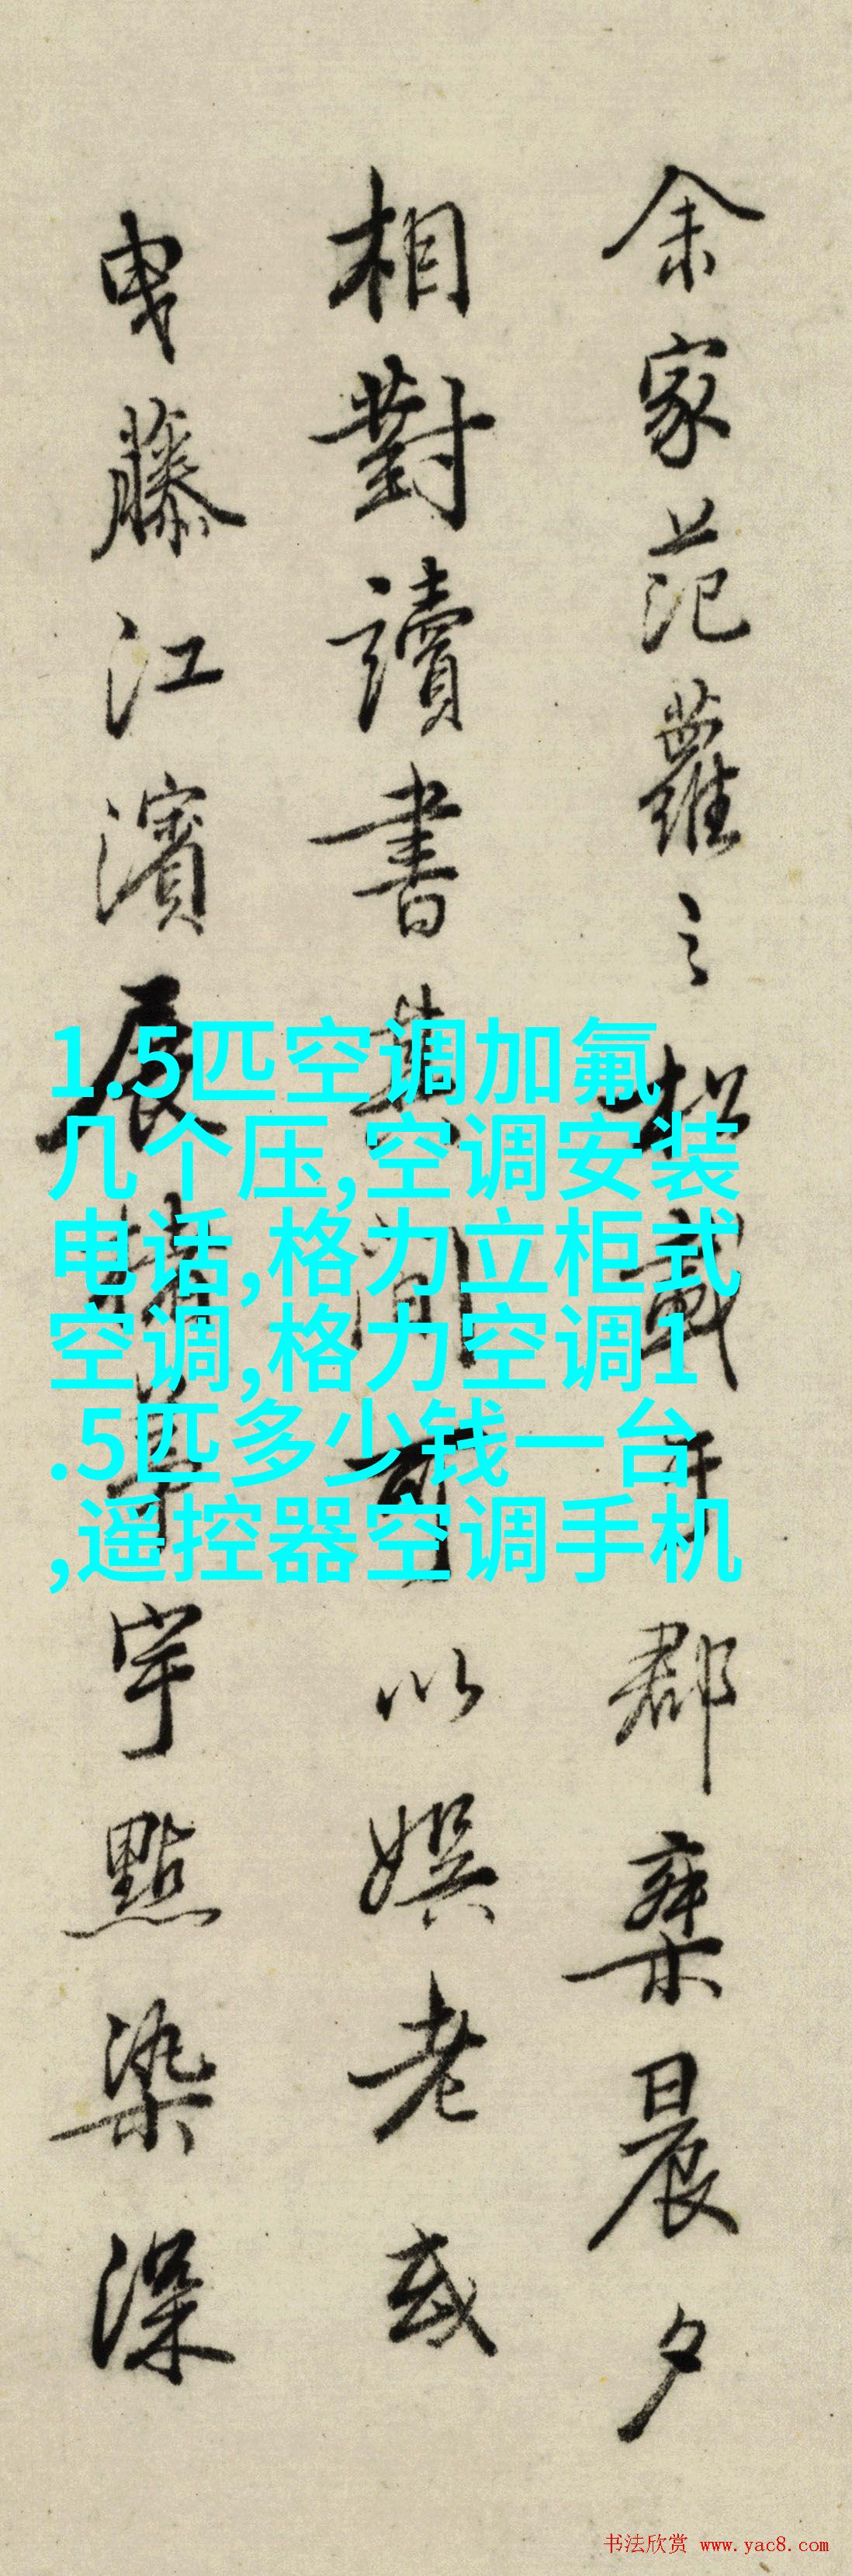 余家范蘿之松盛于郡齋晨夕
相對讀書其間可以娯老或
曳藤江濱展
宇點染深
1.5匹空调加氟
几个压,空调安装
电话,格力立柜式
空调,格力空调1
.5匹多少钱一台
,遥控器空调手机
书法欣赏 www.yac8.com